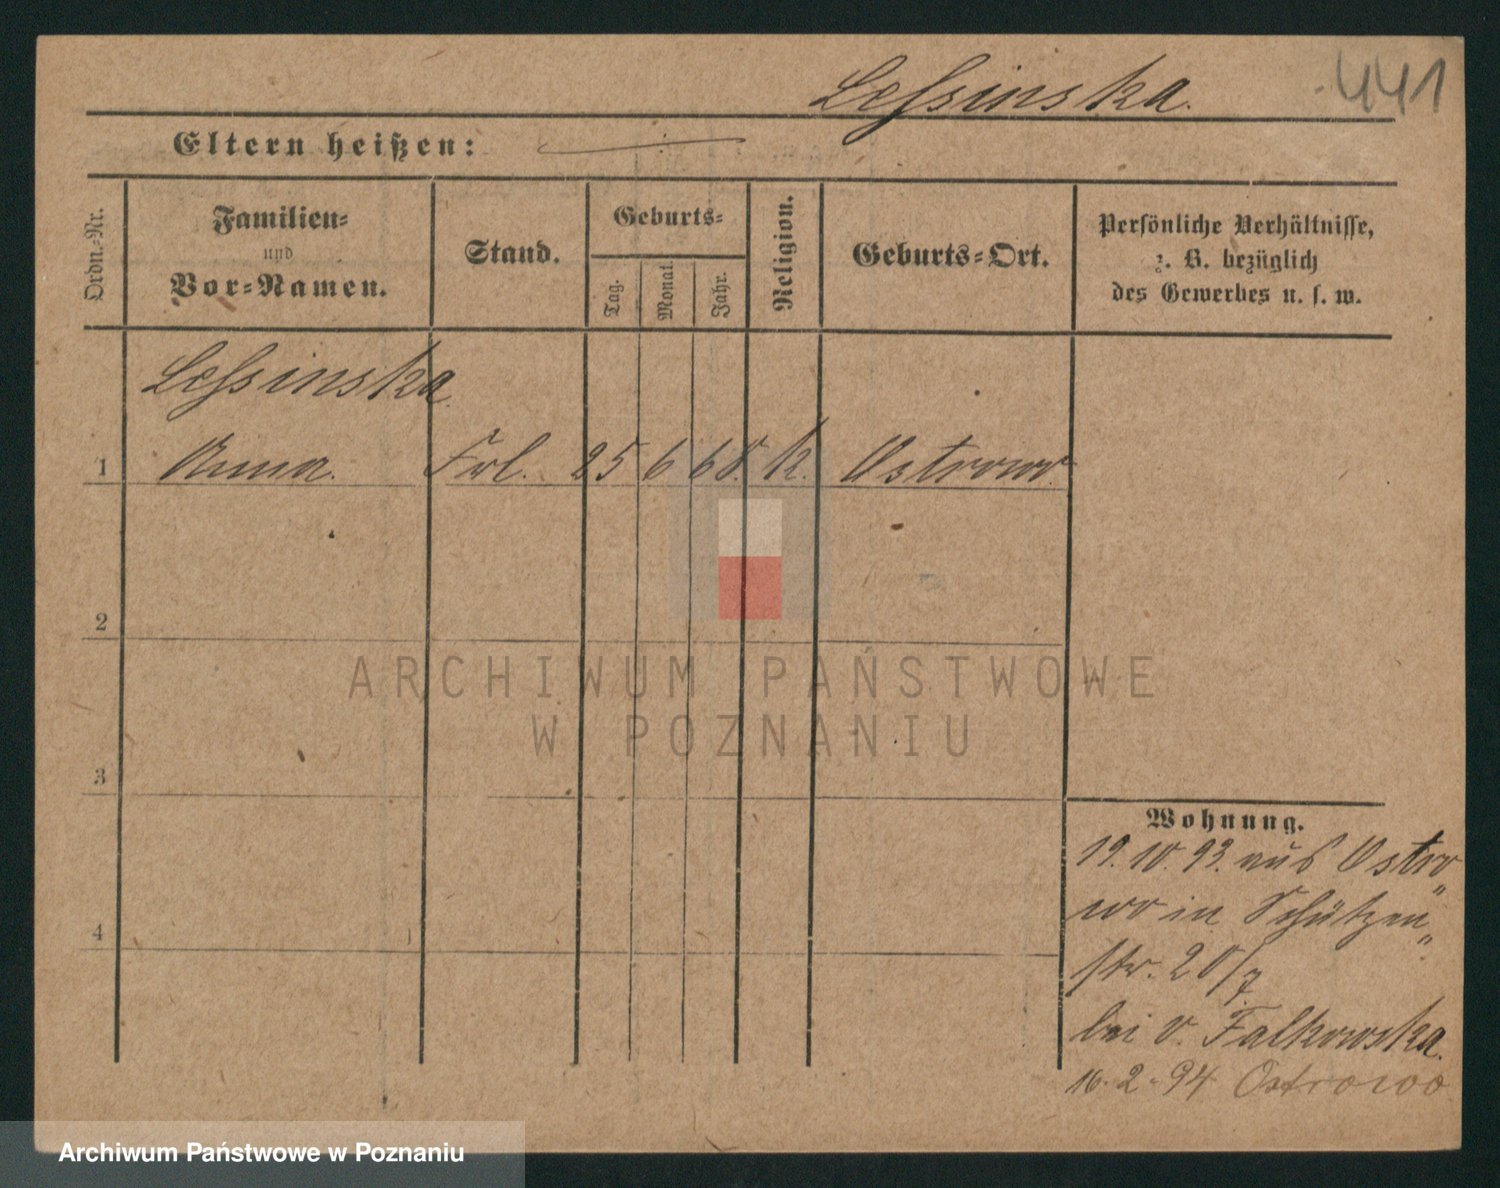 Leſsinska.
441
Eltern heißen:
Ordn.-Nr.
Familien-
und
Vor-Namen.
Stand.
Geburts-
Tag.
Monat.
Jahr.
Religion.
Geburts-Ort.
Persönliche Verhältnisse,
z. B. bezüglich
des Gewerbes u. s. w.
Leſsinska
1 Anna. Frl. 25 6 68. k. Ostrowo.
2
3
4
Wohnung.
19.10.93. aus Ostro„
wo in Schützen„
str. 20/7
bei v. Falkowska.
16.2.94 Ostrowo
ARCHIWUM PAŃSTWOWE
W POZNANIU
Archiwum Państwowe w Poznaniu